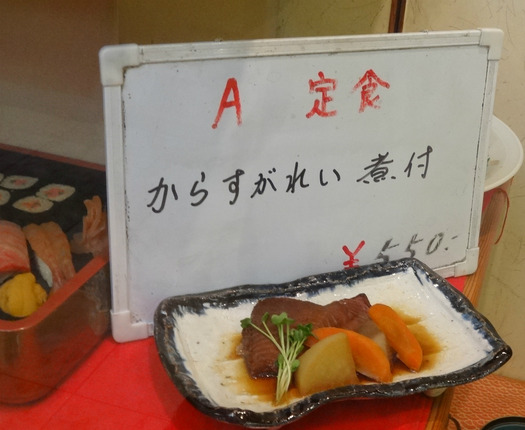 A 定食
からすがれい 煮付
¥550.-